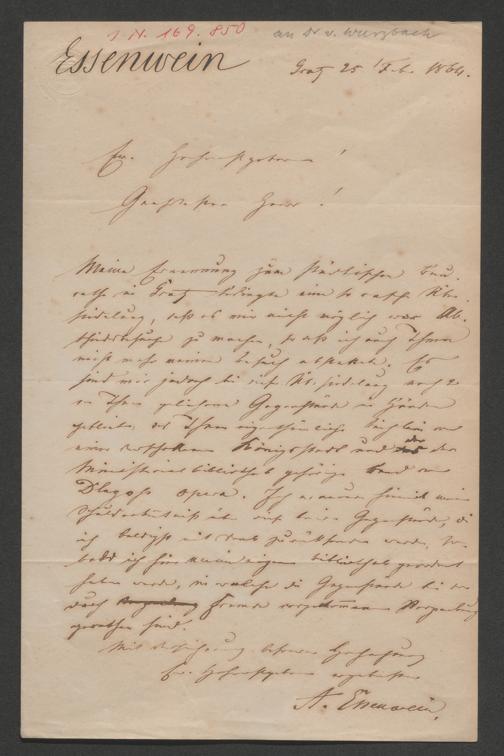 I N. 169.850 an Dr v. Wurzbach
Essenwein
Gratz 25 Feb. 1864.
Ew. Hochwohlgeboren!
Geehrtester Herr!
Meine Ernennung zum städtischen Bau-
rathe in Gratz bedingte eine so rasche Über-
siedelung, daß es mir nicht möglich war Ab-
schiedsbesuche zu machen, so daß ich auch Ihnen
nicht mehr meinen Besuch abstattete. Es
sind mir jedoch bei der Übersiedelung noch 2
von Ihnen geliehene Gegenstände in Händen
geblieben, das Ihnen eigenthümliche
Königsstadt und der
Ministerialbibliothek gehörige Band von
Dlugoss opera. Ich hiemit mein
über diese beiden Gegenstände, die
ich baldigst mit Dank zurücksenden werde, so-
bald ich hier meine eigene Bibliothek geordnet
haben werde, in welche die Gegenstände bei der
durch Fremde vorgenommenen Verpackung
gerathen sind.
Mit Hochachtung
Ew. Hochwohlgeboren ergebenster
A. Essenwein.